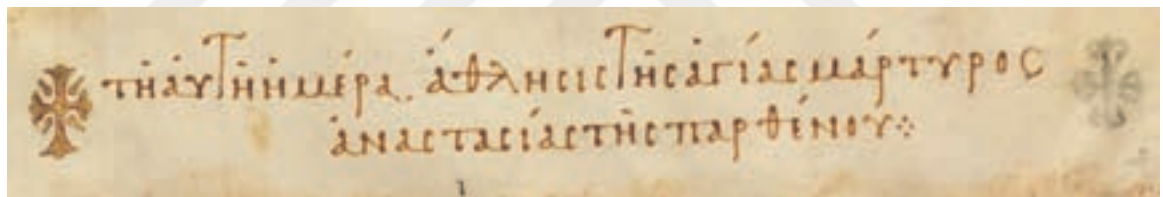 τῆ ἀυτῆ ἡμέρα. ἄθλησις τῆς ἁγίας μάρτυρος
ἀναστασίας τῆς παρθένου⁘